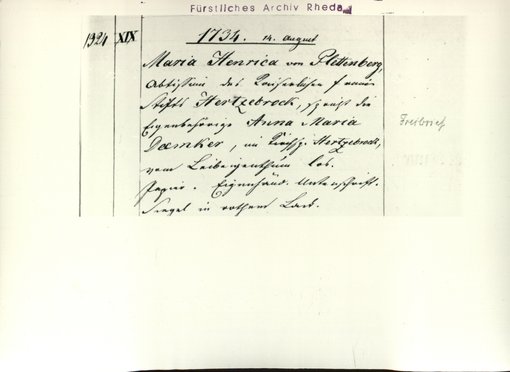 Fürstliches Archiv Rheda
1924 XIX 1734. 14. August
Maria Henrica von Plettenberg,
Abtissin des Kaiserlichen freien
Stifts Hertzebrock, spricht die
Eigenbehörige Anna Maria
Dæmker, im Kirchsp. Hertzebrock,
vom Leibeigenthum los.
Papier. Eigenhänd. Unterschrift.
Siegel in rothem Lack.
Freibrief